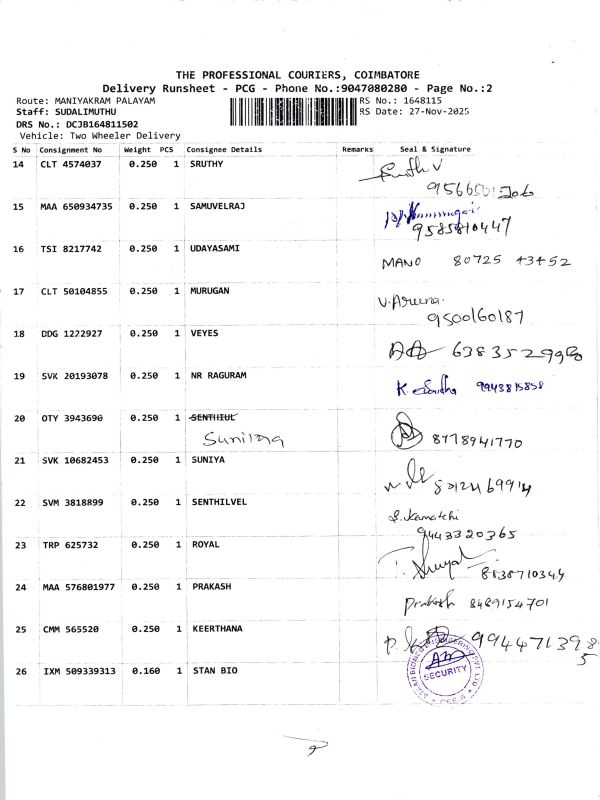 THE PROFESSIONAL COURIERS, COIMBATORE
Delivery Runsheet - PCG - Phone No.:9047080280 - Page No.:2
Route: MANIYAKRAM PALAYAM RS No.: 1648115
Staff: SUDALIMUTHU RS Date: 27-Nov-2025
DRS No.: DCJB164811502
Vehicle: Two Wheeler Delivery
S No Consignment No Weight PCS Consignee Details Remarks Seal & Signature
14 CLT 4574037 0.250 1 SRUTHY
15 MAA 650934735 0.250 1 SAMUVELRAJ
9585810447
16 TSI 8217742 0.250 1 UDAYASAMI
MANO 80725 43452
17 CLT 50104855 0.250 1 MURUGAN V.Areena.
9500160187
18 DDG 1222927 0.250 1 VEYES
19 SVK 20193078 0.250 1 NR RAGURAM
K 9943815858
20 OTY 3943690 0.250 1 SENTHIUL
8778941770
21 SVK 10682453 0.250 1 SUNIYA
22 SVM 3818899 0.250 1 SENTHILVEL
S.Kamatchi
9443320365
23 TRP 625732 0.250 1 ROYAL
8838710344
24 MAA 576801977 0.250 1 PRAKASH
Prakash 8489154701
25 CMM 565520 0.250 1 KEERTHANA
994471398
5
26 IXM 509339313 0.160 1 STAN BIO SECURITY